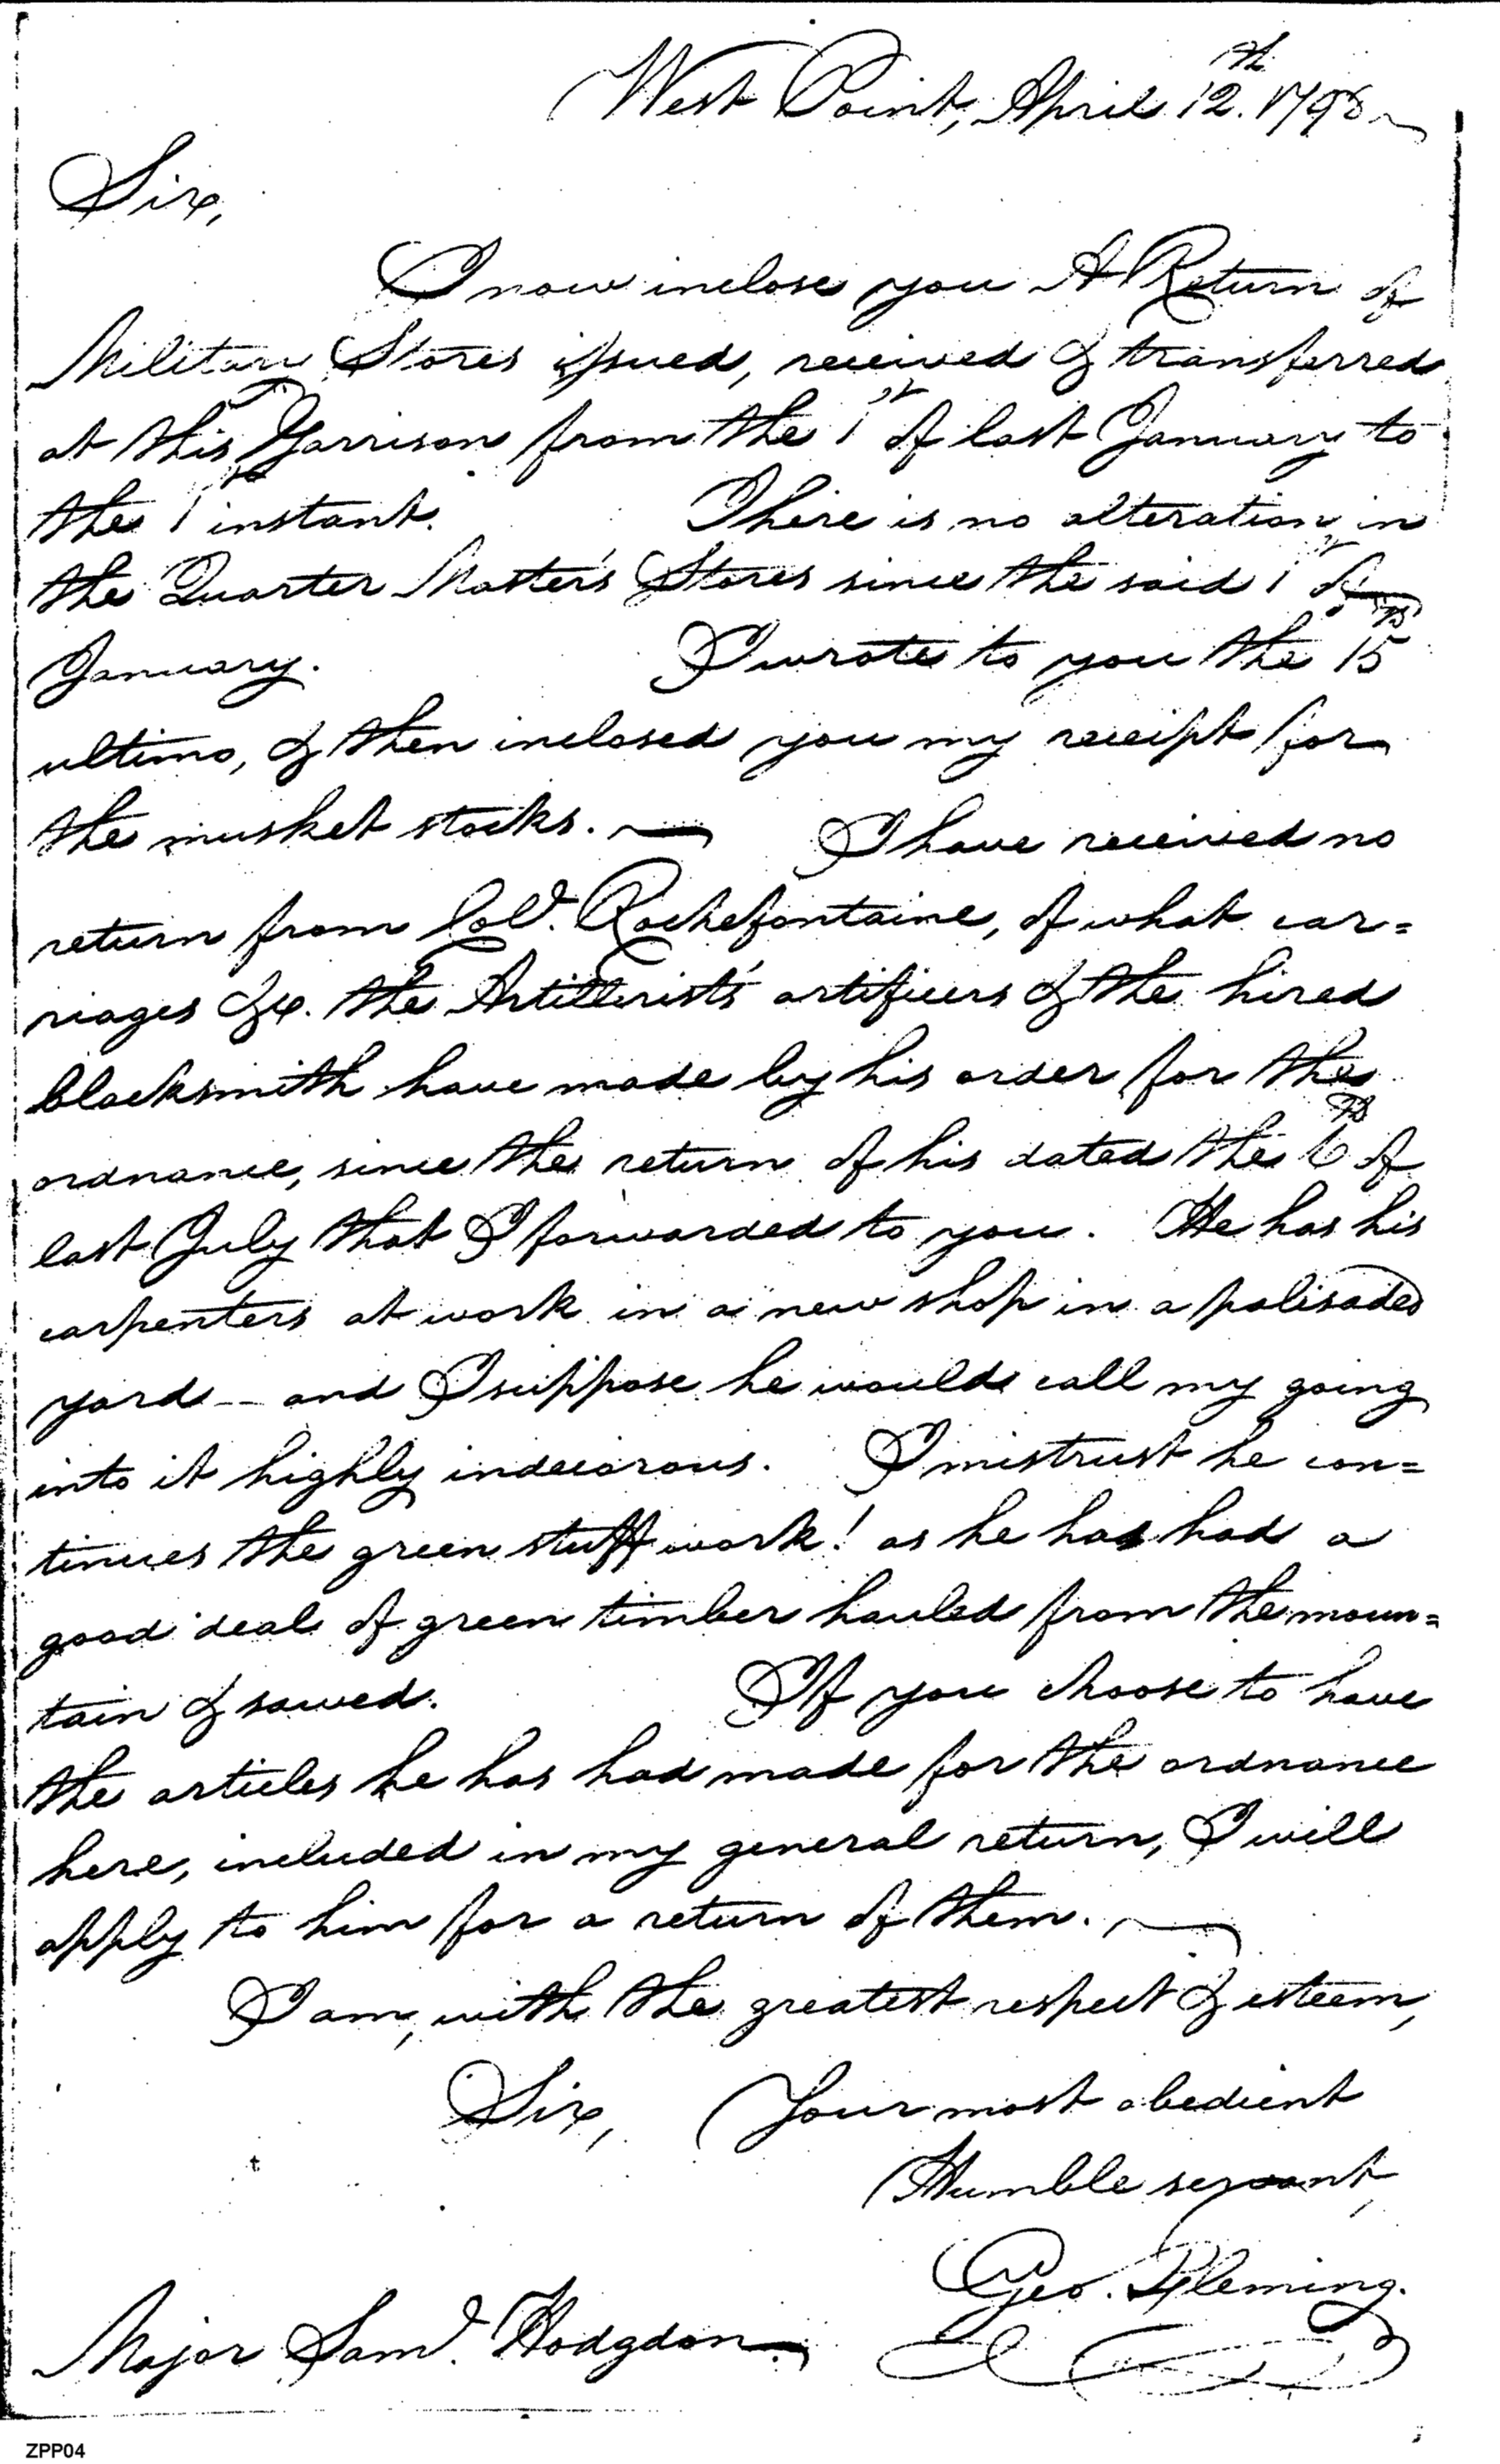 West Point, April 12.th 1798
Sir,
I now inclose you A Return of
Military Stores issued, received & transferred
at this Garrison from the 1st of last January to
the 1st instant. There is no alteration in
the Quarter Master's Stores since the said 1st of
January. I wrote to you the 15th
ultimo, & then inclosed you my receipt for
the musket stocks. — I have received no
return from Col.o Rochefontaine, of what car=
riages &c. the Artillerists' artificers & the hired
blacksmith have made by his order for the
ordnance, since the return of his dated the 6th of
last July that I forwarded to you. He has his
carpenters at work in a new shop in a palisaded
yard -- and I suppose he would call my going
into it highly indecorous. I mistrust he con=
tinues the green stuff work! as he has had a
good deal of green timber hauled from the moun=
tain & sawed. If you choose to have
the articles he has had made for the ordnance
here, included in my general return, I will
apply to him for a return of them. —
I am, with the greatest respect & esteem,
Sir, Your most obedient
Humble servant,
Geo. Fleming.
Major Sam.l Hodgdon
ZPP04